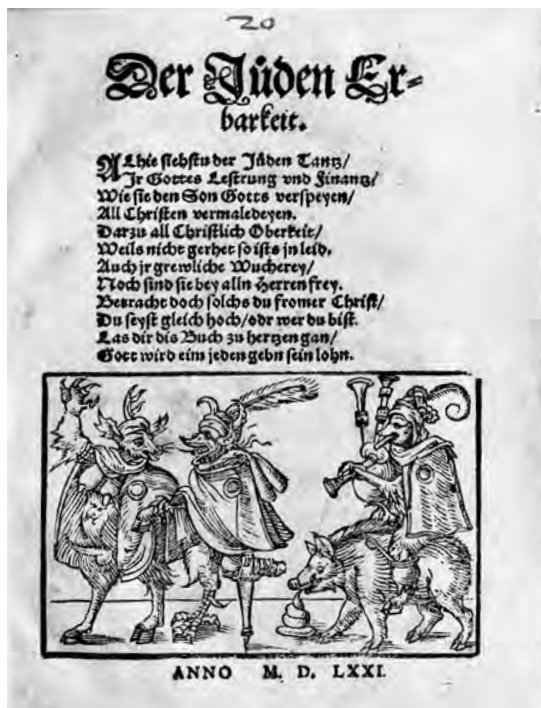 20
Der Juͤden Er=
barkeit.
ALhie siehstu der Juͤden Tantz/
Jr Gottes Lestrung vnd Finantz/
Wie sie den Son Gotts verspeyen/
All Christen vermaledeyen.
Darzu all Christlich Oberkeit/
Weils nicht gerhet so ists jn leid.
Auch jr grewliche Wucherey/
Noch sind sie bey alln Herren frey.
Betracht doch solchs du fromer Christ/
Du seyst gleich hoch/odr wer du bist.
Las dir dis Buch zu hertzen gan/
Gott wird eim jeden gebn sein lohn.
ANNO M. D. LXXI.